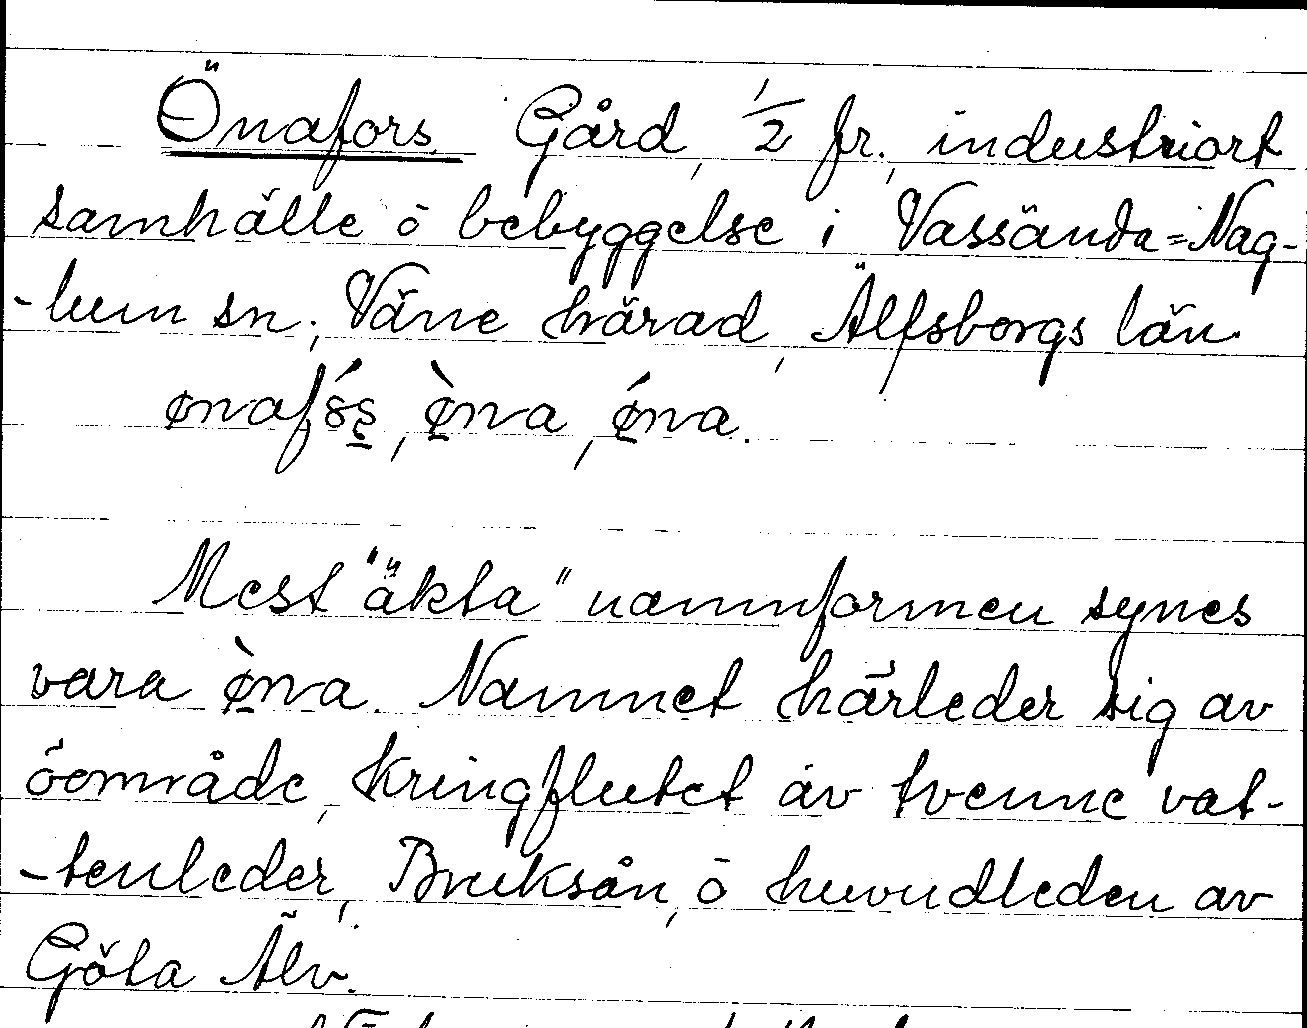 Önafors. Gård, 1/2 fr., industriort
samhälle ō bebyggelse i Vassända=Nag-
-lum sn, Väne härad, Älfsborgs län.
ønafó̱s̱, ø̱̀na, ǿ̱na.
Mest "äkta" namnformen synes
vara ø̱̀na. Namnet härleder sig av
öområde, kringflutet av tvenne vat-
-tenleder, Bruksån, ō huvudleden av
Göta Älv.